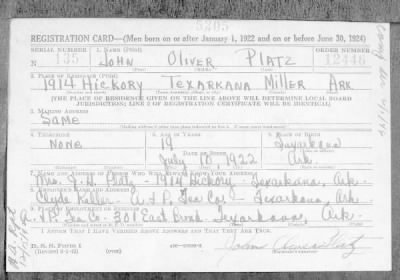 5305
REGISTRATION CARD—(Men born on or after January 1, 1922 and on or before June 30, 1924)
SERIAL NUMBER 1. NAME (Print) ORDER NUMBER
N 135 JOHN OLIVER PLATZ 12446
(First) (Middle) (Last)
2. PLACE OF RESIDENCE (Print)
1914 HICKORY TEXARKANA MILLER ARK.
[THE PLACE OF RESIDENCE GIVEN ON THE LINE ABOVE WILL DETERMINE LOCAL BOARD
JURISDICTION; LINE 2 OF REGISTRATION CERTIFICATE WILL BE IDENTICAL]
3. MAILING ADDRESS
SAME
4. TELEPHONE 5. AGE IN YEARS 6. PLACE OF BIRTH
NONE 19 Texarkana
July 10 1922 Ark.
7. NAME AND ADDRESS OF PERSON WHO WILL ALWAYS KNOW YOUR ADDRESS
Mrs. J. H. Platz - 1914 Hickory - Texarkana, Ark.
Clyde Keller - A & P Tea Co - Texarkana, Ark.
A & P Tea Co - 301 East Broad - Texarkana, Ark.
I AFFIRM THAT I HAVE VERIFIED ABOVE ANSWERS AND THAT THEY ARE TRUE.
D. S. S. Form 1
John Oliver Platz